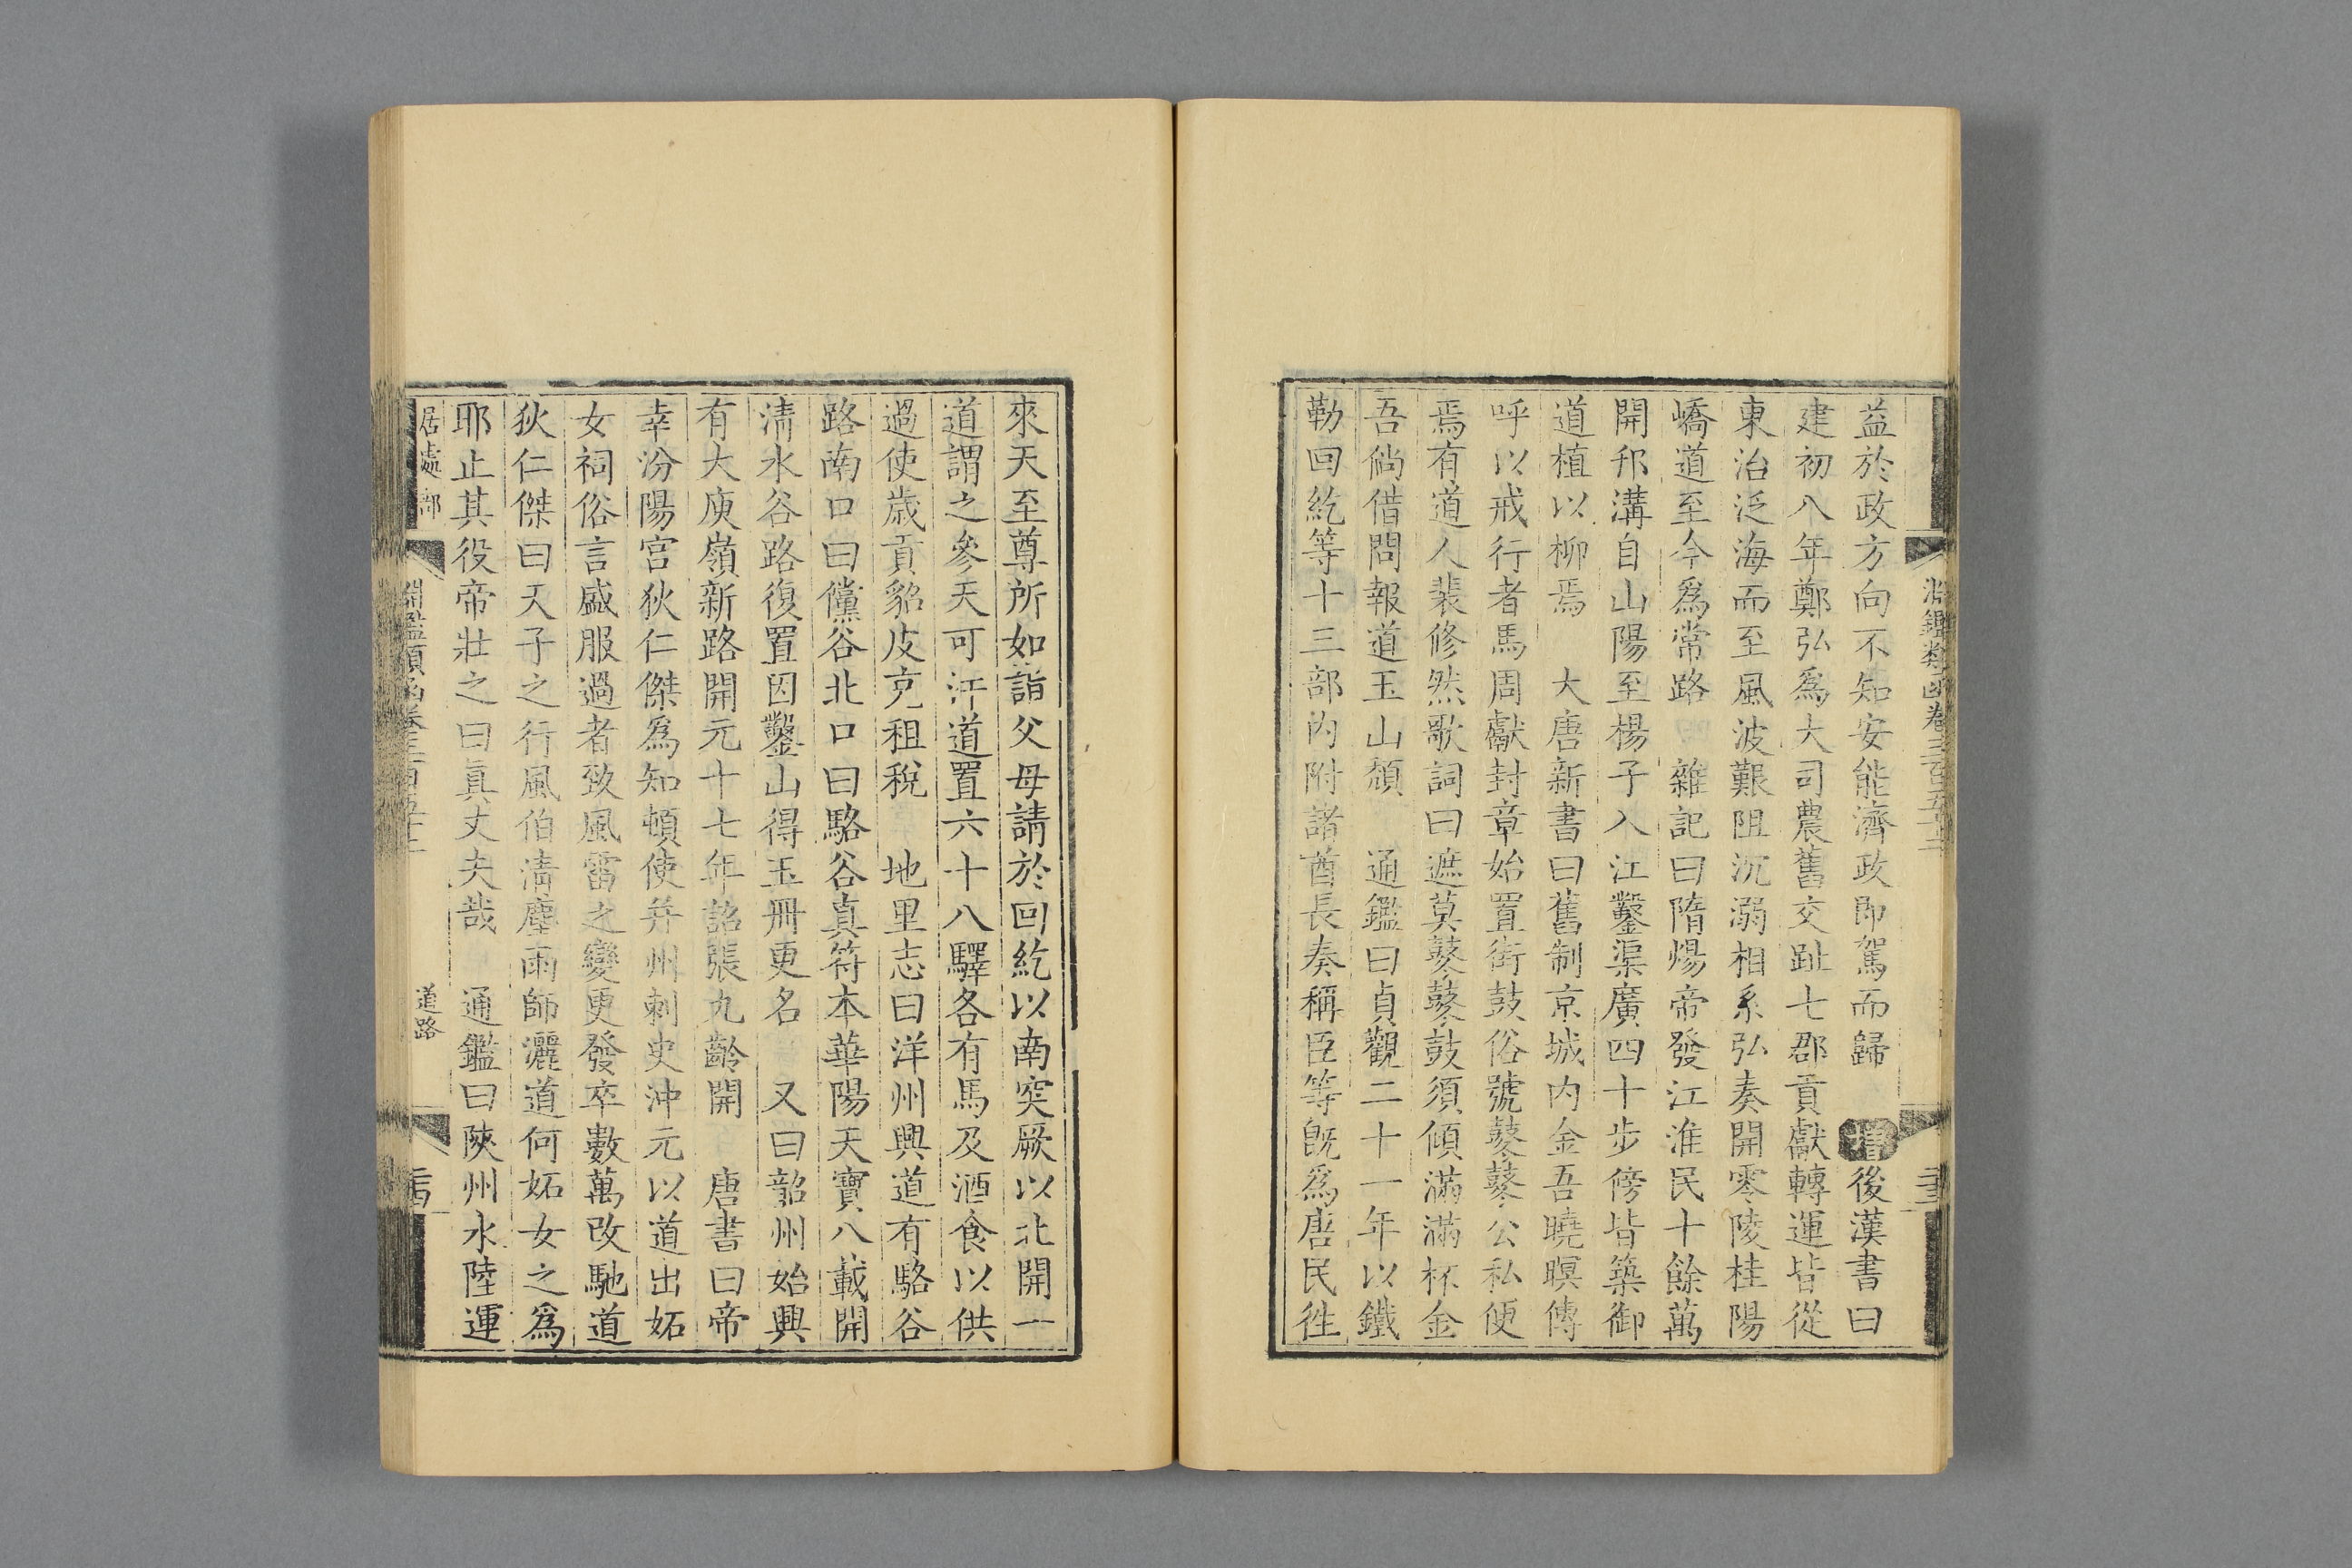 淵鑑類函卷三百五十二
益於政方向不知安能濟政即駕而歸 增後漢書曰
建初八年鄭弘爲大司農舊交趾七郡貢獻轉運皆從
東冶泛海而至風波艱阻沉溺相系弘奏開零陵桂陽
嶠道至今爲常路 雜記曰隋煬帝發江淮民十餘萬
開邗溝自山陽至楊子入江鑿渠廣四十步傍皆築御
道植以柳焉 大唐新書曰舊制京城内金吾曉暝傳
呼以戒行者馬周獻封章始置街鼓俗號鼕鼕公私便
焉有道人裴修然歌詞曰遮莫鼕鼕鼓須傾滿滿杯金
吾倘借問報道玉山頹 通鑑曰貞觀二十一年以鐵
勒回紇等十三部内附諸酋長奏稱臣等旣爲唐民徃
來天至尊所如詣父母請於回紇以南突厥以北開一
道謂之參天可汗道置六十八驛各有馬及酒食以供
過使歲貢貂皮充租稅 地里志曰洋州興道有駱谷
路南口曰儻谷北口曰駱谷真符本華陽天寶八載開
清水谷路復置因鑿山得玉冊更名 又曰韶州始興
有大庾嶺新路開元十七年詔張九齡開 唐書曰帝
幸汾陽宮狄仁傑爲知頓使并州刺史沖元以道出妬
女祠俗言盛服過者致風雷之變更發卒數萬改馳道
狄仁傑曰天子之行風伯清塵雨師灑道何妬女之爲
耶止其役帝壯之曰眞丈夫哉 通鑑曰陝州水陸運
居處部 淵鑑類函卷三百五十二 道路